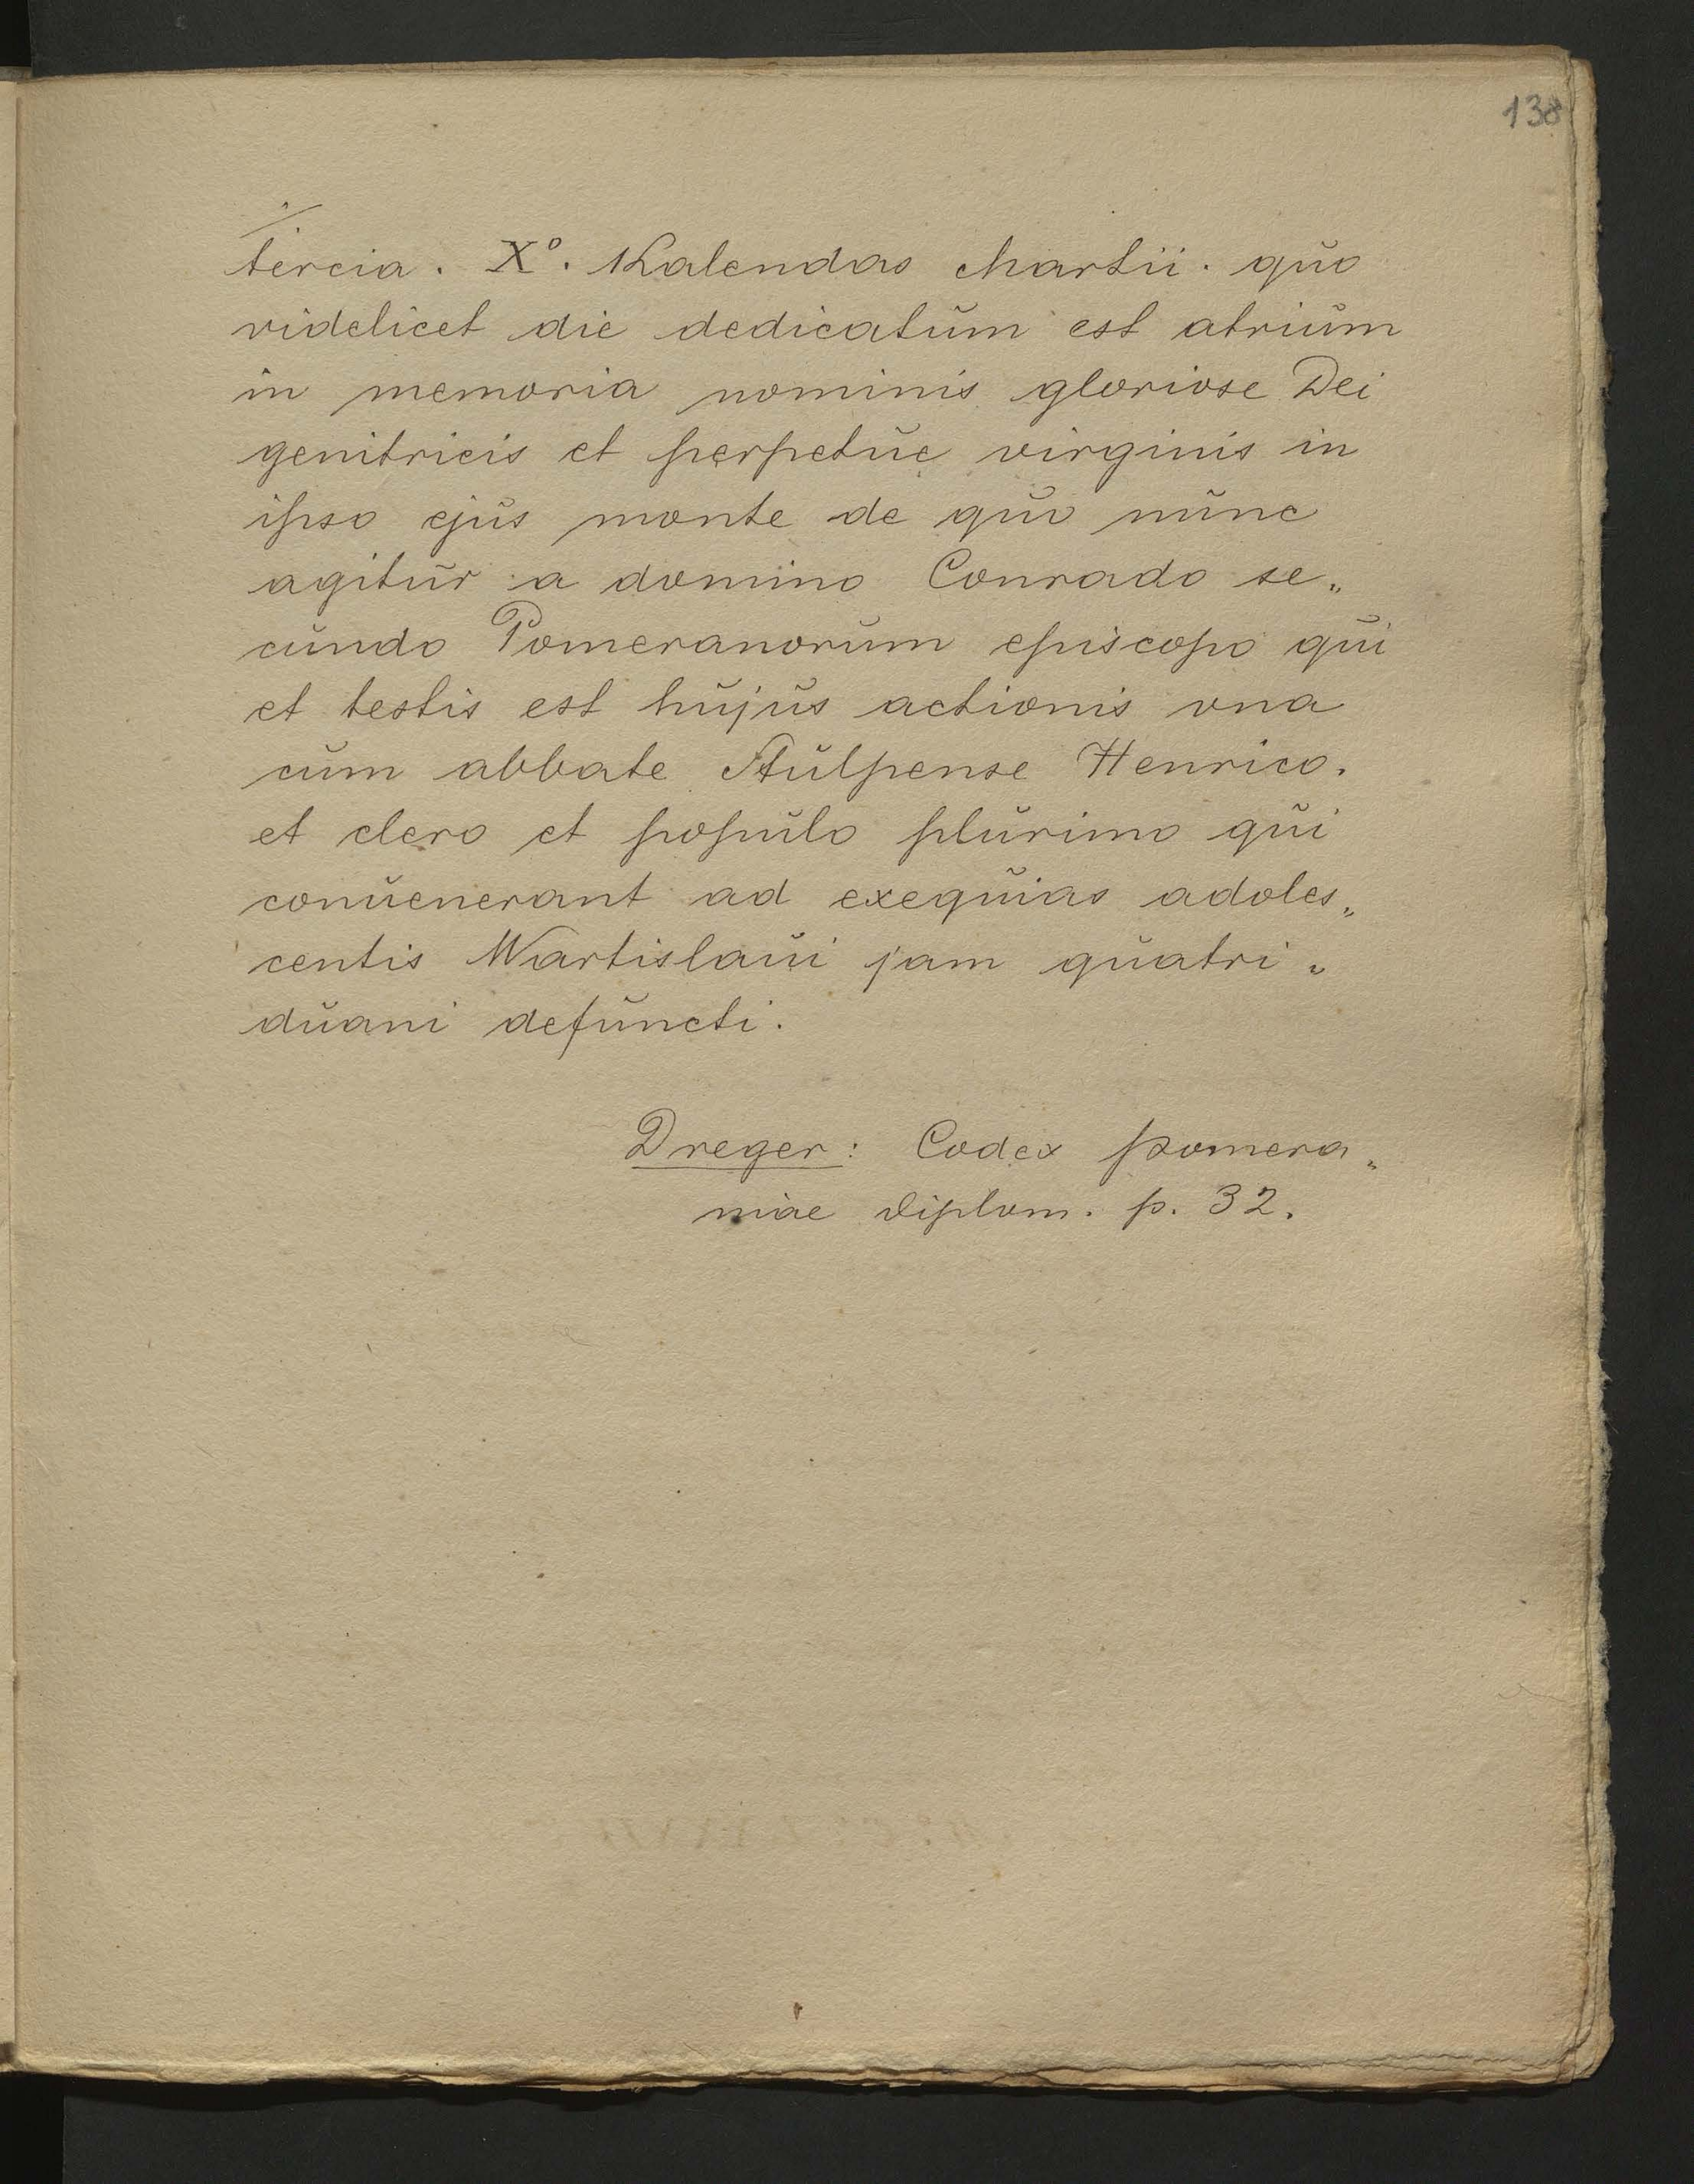 138
tercia. X°. Kalendas Martii. quo
videlicet die dedicatum est atrium
in memoria nominis gloriose Dei
genitricis et perpetue virginis in
ipso ejus monte de quo nunc
agitur a domino Conrado se„
cundo Pomeranorum episcopo qui
et testis est hujus actionis vna
cum abbate Stulpense Henrico.
et clero et populo plurimo qui
conuenerant ad exequias adoles„
centis Wartislaui jam quatri„
duani defuncti.
Dreger: Codex pomera„
niae diplom. p. 32.